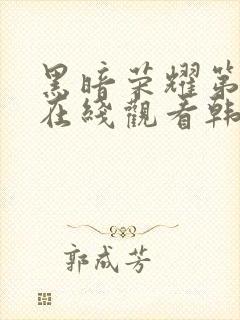 黑暗荣耀第
在线觀看韩
郭成芳